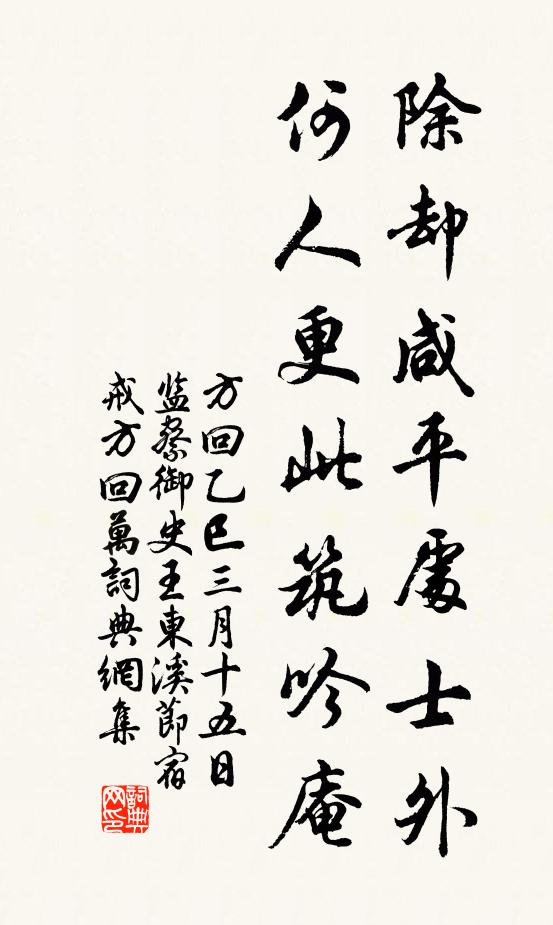 除却咸平處士外
何人更此筑吟庵
方回乙巳三月十五日
监察御史王東溪節宿
戒方回萬詞典網集
詞典网印